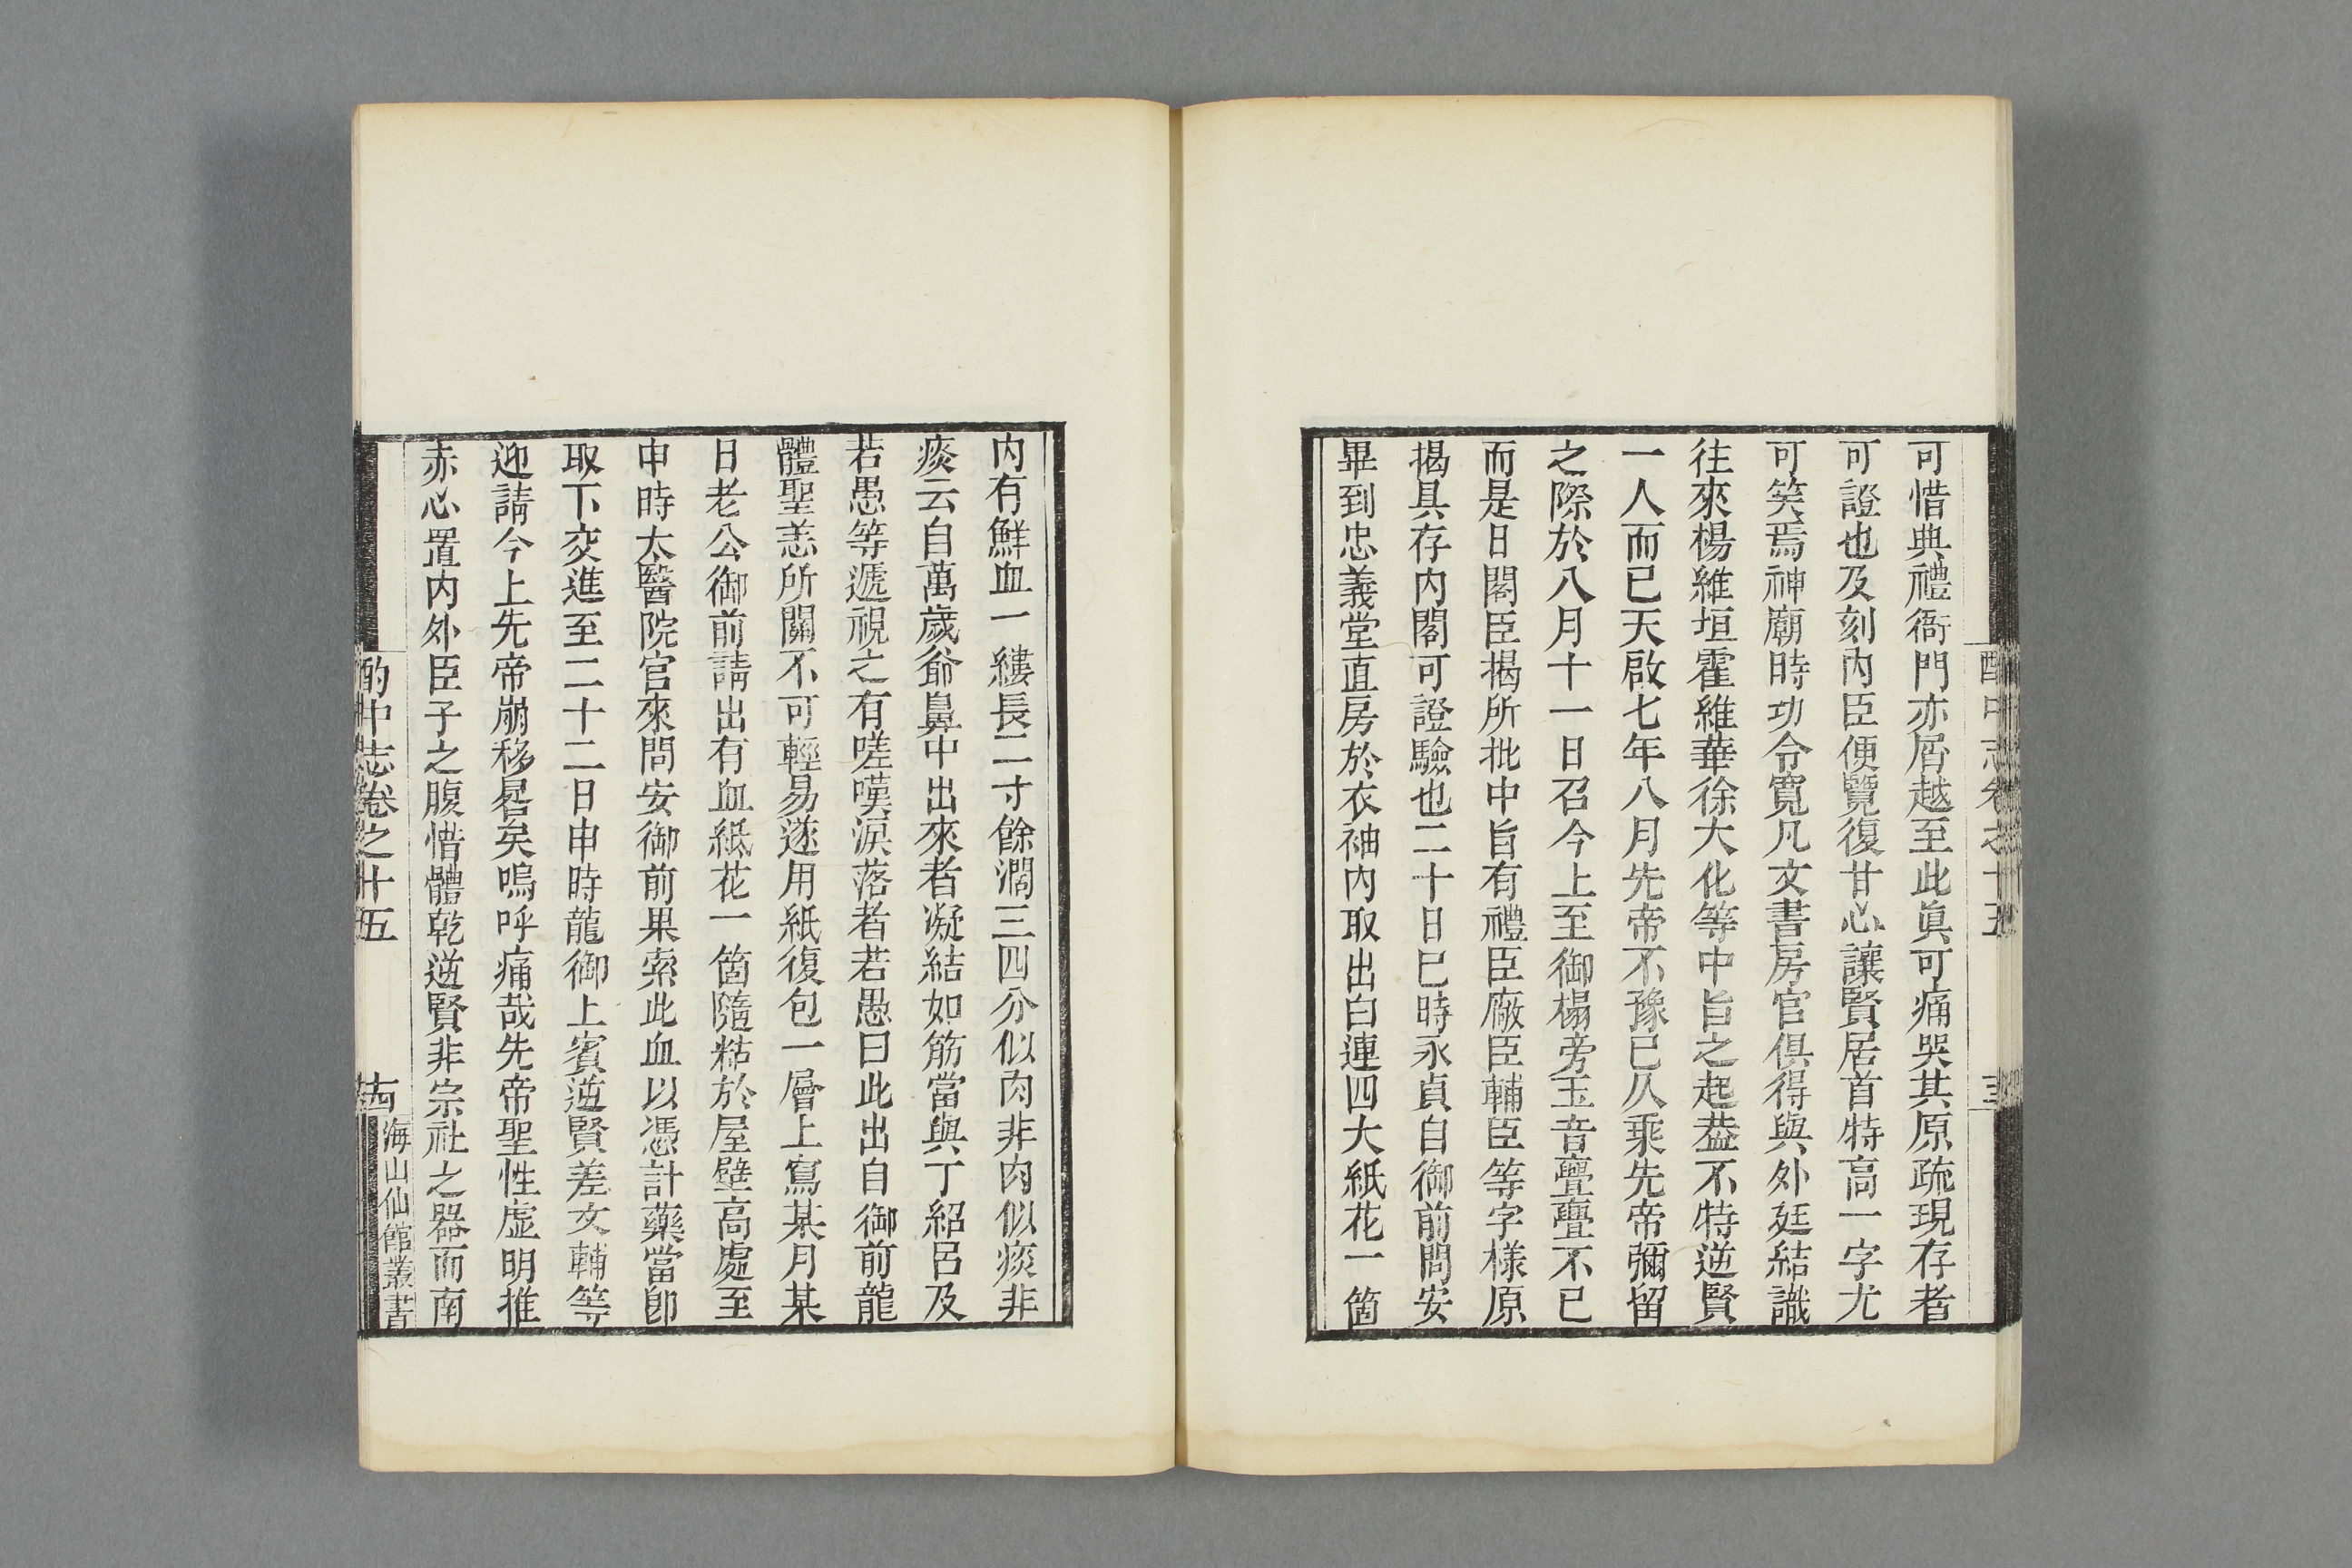 酌中志卷之十五
可惜典禮衙門亦屑越至此眞可痛哭其原疏現存者
可證也及刻內臣便覽復甘心讓賢居首特高一字尤
可笑焉神廟時功令寬凡文書房官俱得與外廷結識
往來楊維垣霍維華徐大化等中旨之起葢不特逆賢
一人而已天啟七年八月先帝不豫已久乘先帝彌留
之際於八月十一日召今上至御榻旁玉音亹亹不已
而是日閣臣揭所批中旨有禮臣廠臣輔臣等字樣原
揭具存內閣可證驗也二十日巳時永貞自御前問安
畢到忠義堂直房於衣袖內取出白連四大紙花一箇
內有鮮血一縷長二寸餘濶三四分似肉非肉似痰非
痰云自萬歲爺鼻中出來者凝結如筋當與丁紹呂及
若愚等遞視之有嗟嘆淚落者若愚曰此出自御前龍
體聖恙所關不可輕易遂用紙復包一層上寫某月某
日老公御前請出有血紙花一箇隨粘於屋壁高處至
申時太醫院官來問安御前果索此血以憑計藥當卽
取下交進至二十二日申時龍御上賓逆賢差文輔等
迎請今上先帝崩移晷矣嗚呼痛哉先帝聖性虛明推
赤心置內外臣子之腹惜體乾逆賢非宗社之器而南
酌中志卷之十五
十四
海山仙館叢書